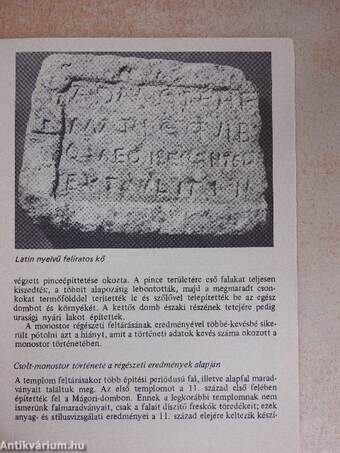 Latin nyelvű feliratos kő
végzett pinceépíttetése okozta. A pince területére eső falakat teljesen
kiszedték, a többit alapozásig lebontották, majd a megmaradt cson-
kokat termőfölddel terítették le és szőlővel telepítették be az egész
dombot és környékét. A kettős domb északi részének tetejére pedig
urasági nyári lakot építettek.
A monostor régészeti feltárásának eredményével többé-kevésbé sike-
rült pótolni azt a hiányt, amit a történeti adatok kevés száma okozott a
monostor történetében.
Csolt-monostor története a régészeti eredmények alapján
A templom feltárásakor több építési periódusú fal, illetve alapfal marad-
ványait találtuk meg. Az első templomot a 11. század első felében
építették fel a Mágori-dombon. Ennek a legkorábbi templomnak nem
ismerünk falmaradványait, csak a falait díszítő freskók töredékeit; ezek
anyag- és stílusvizsgálati eredményei a 11. század elejére keltezik készí-
Antikvárium.hu